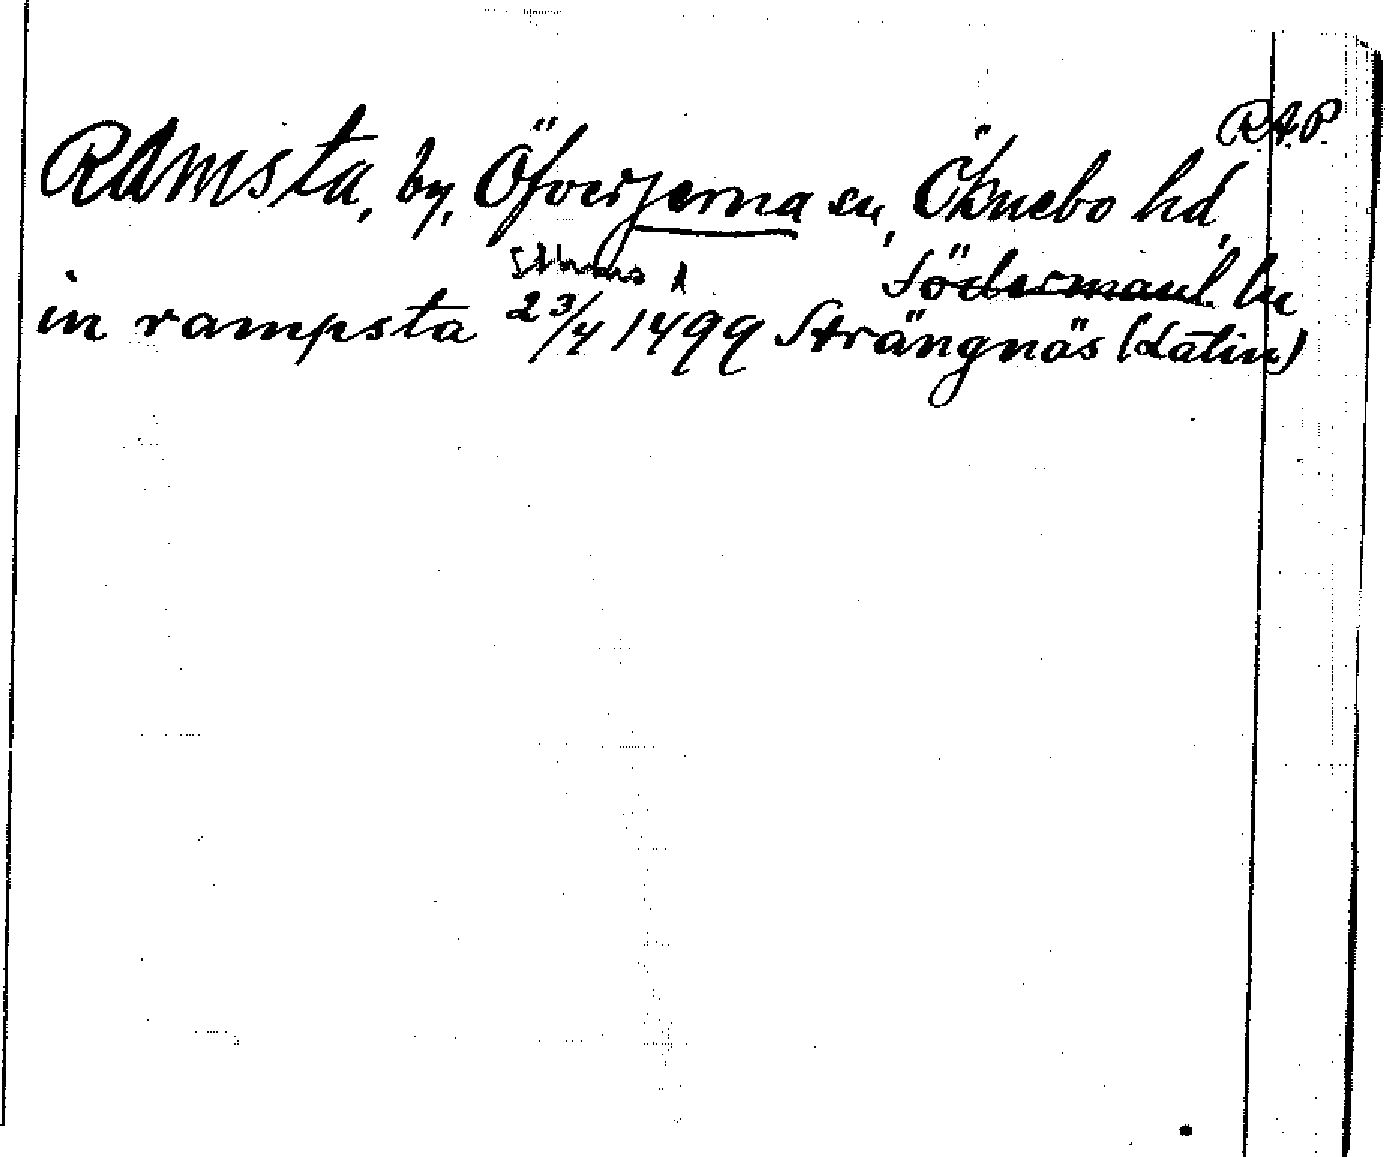 R.A.P.
Ramsta, by, Öfverjerna sn, Öknebo hd,
Södermanl. ln
in rampsta 23/4 1499 Strängnäs (Latin)